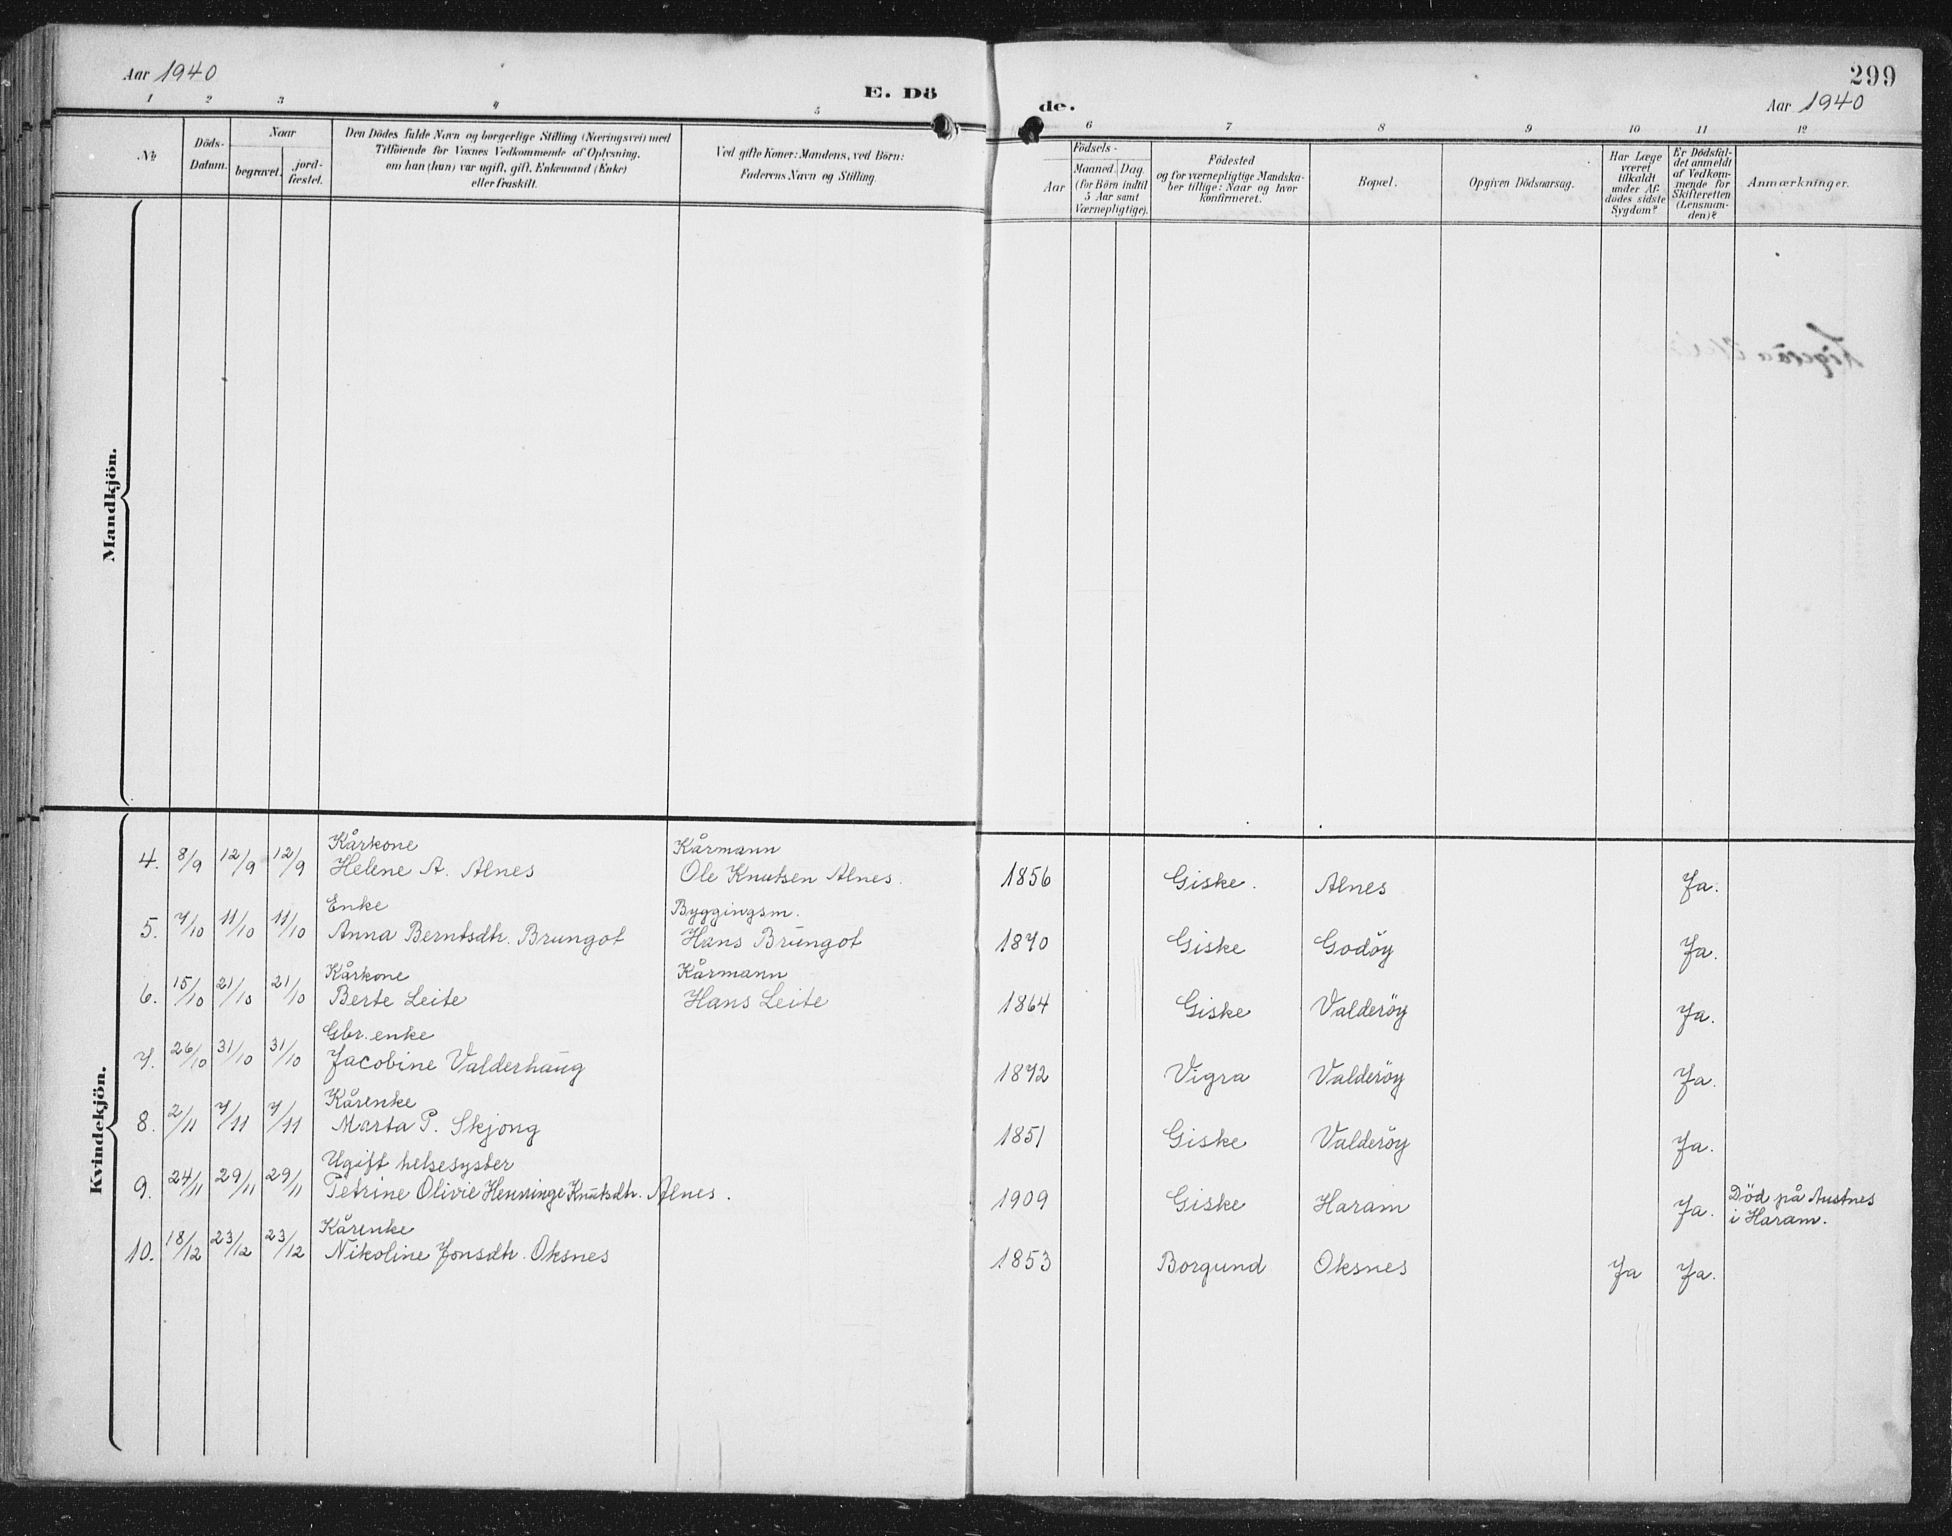 Aar 1940
E. Dö
de.
299
Aar 1940
1 2 3 4 5 6 7 8 9 10 11 12
No
Döds-
Datum.
Naar
begravet.
jord-
fæstet.
Den Dödes fulde Navn og borgerlige Stilling (Næringsvei) med
Tilföiende for Voxnes Vedkommende af Oplysning.
om han (hun) var ugift, gift, Enkemand (Enke)
eller fraskilt.
Ved gifte Koner: Mandens, ved Börn:
Faderens Navn og Stilling.
Födsels-
Aar
Maaned. Dag.
(for Börn indtil
5 Aar samt
Værnepligtige).
Födested
og for værnepligtige Mandska-
ber tillige: Naar og hvor
konfirmeret.
Bopæl.
Opgiven Dödsaarsag.
Har Læge
været
tilkaldt
under Af-
dödes sidste
Sygdom?
Er Dödsfal-
det anmeldt
af Vedkom-
mende for
Skifteretten
(Lensman-
den)?
Anmærkninger.
Mandkjön.
Kvindekjön.
Kårkone Kårmann
4. 8/9 12/9 12/9 Helene A. Alnes Ole Knutsen Alnes. 1856 Giske. Alnes Ja.
Enke Byggingsm.
5. 7/10 11/10 11/10 Anna Berntsdtr. Brungot Hans Brungot 1870 Giske Godöy Ja.
Kårkone Kårmann
6. 15/10 21/10 21/10 Berte Leite Hans Leite 1864 Giske Valderöy Ja.
Gbr. enke
7. 26/10 31/10 31/10 Jacobine Valderhaug 1872 Vigra Valderöy Ja.
Kårenke
8. 2/11 7/11 7/11 Marta P. Skjong 1851 Giske Valderöy Ja.
Ugift helsesyster
9. 24/11 29/11 29/11 Petrine Olivie Henninge Knutsdtr. Alnes. 1909 Giske Haram Ja. Död på Austnes
i Haram.
Kårenke
10. 18/12 23/12 23/12 Nikoline Jonsdtr. Oksnes 1853 Borgund Oksnes Ja Ja.